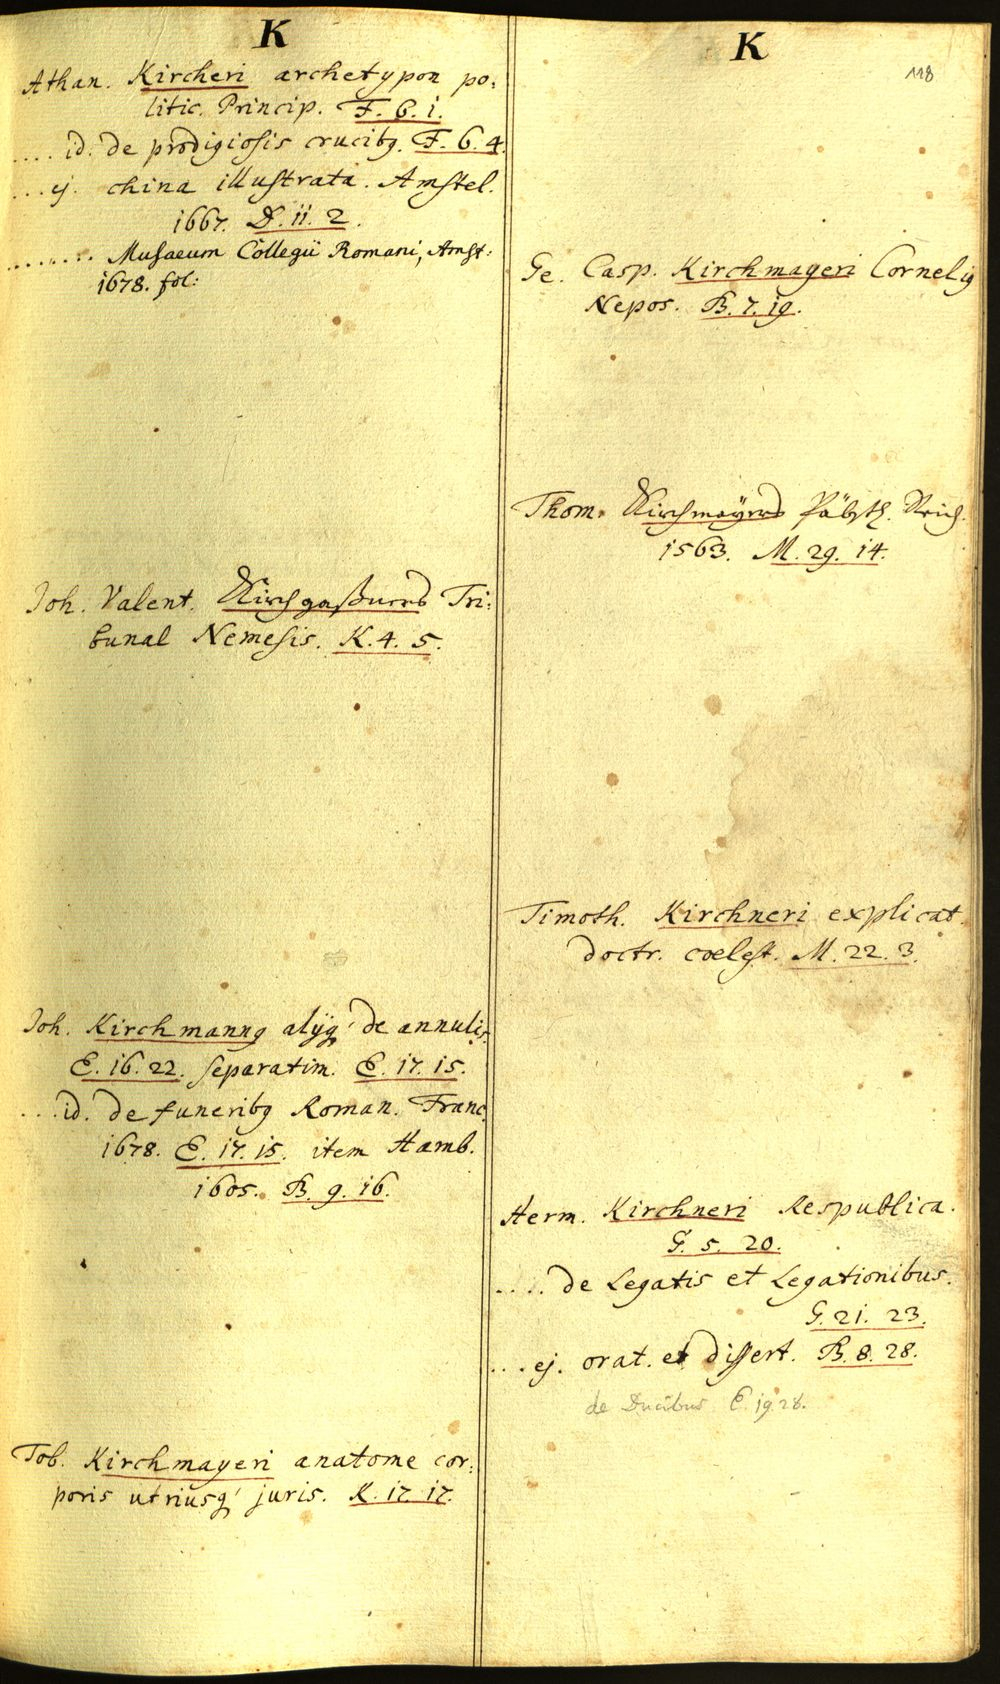 K
Athan. Kircheri archetypon po:
litic. Princip. F. 6. 1.
.... id. de prodigiosis crucibg. F. 6. 4.
... ej. china illustrata. Amstel.
1667. D. 11. 2.
........ Musaeum Collegii Romani, Amst:
1678. fol:
Joh. Valent. Kirchgaßners Tri:
bunal Nemesis. K. 4. 5.
Joh. Kirchmanng alijq; de annulis
E. 16. 22. separatim. E. 17. 15.
... id. de funeribg Roman. Franc.
1678. E. 17. 15. item Hamb.
1605. B. 9. 16.
Tob. Kirchmayeri anatome cor:
poris utriusq; juris. K. 17. 17.
K
118
Ge. Casp. Kirchmayeri Cornelig
Nepos. B. 7. 19.
Thom. Kirchmaÿers Päbstl. Reich.
1563. M. 29. 14.
Timoth. Kirchneri explicat.
doctr. coelest. M. 22. 3.
Herm. Kirchneri Respublica.
G. 5. 20.
.... de Legatis et Legationibus.
G. 21. 23.
... ej. orat. et dissert. B. 8. 28.
de Ducibus E. 19 28.